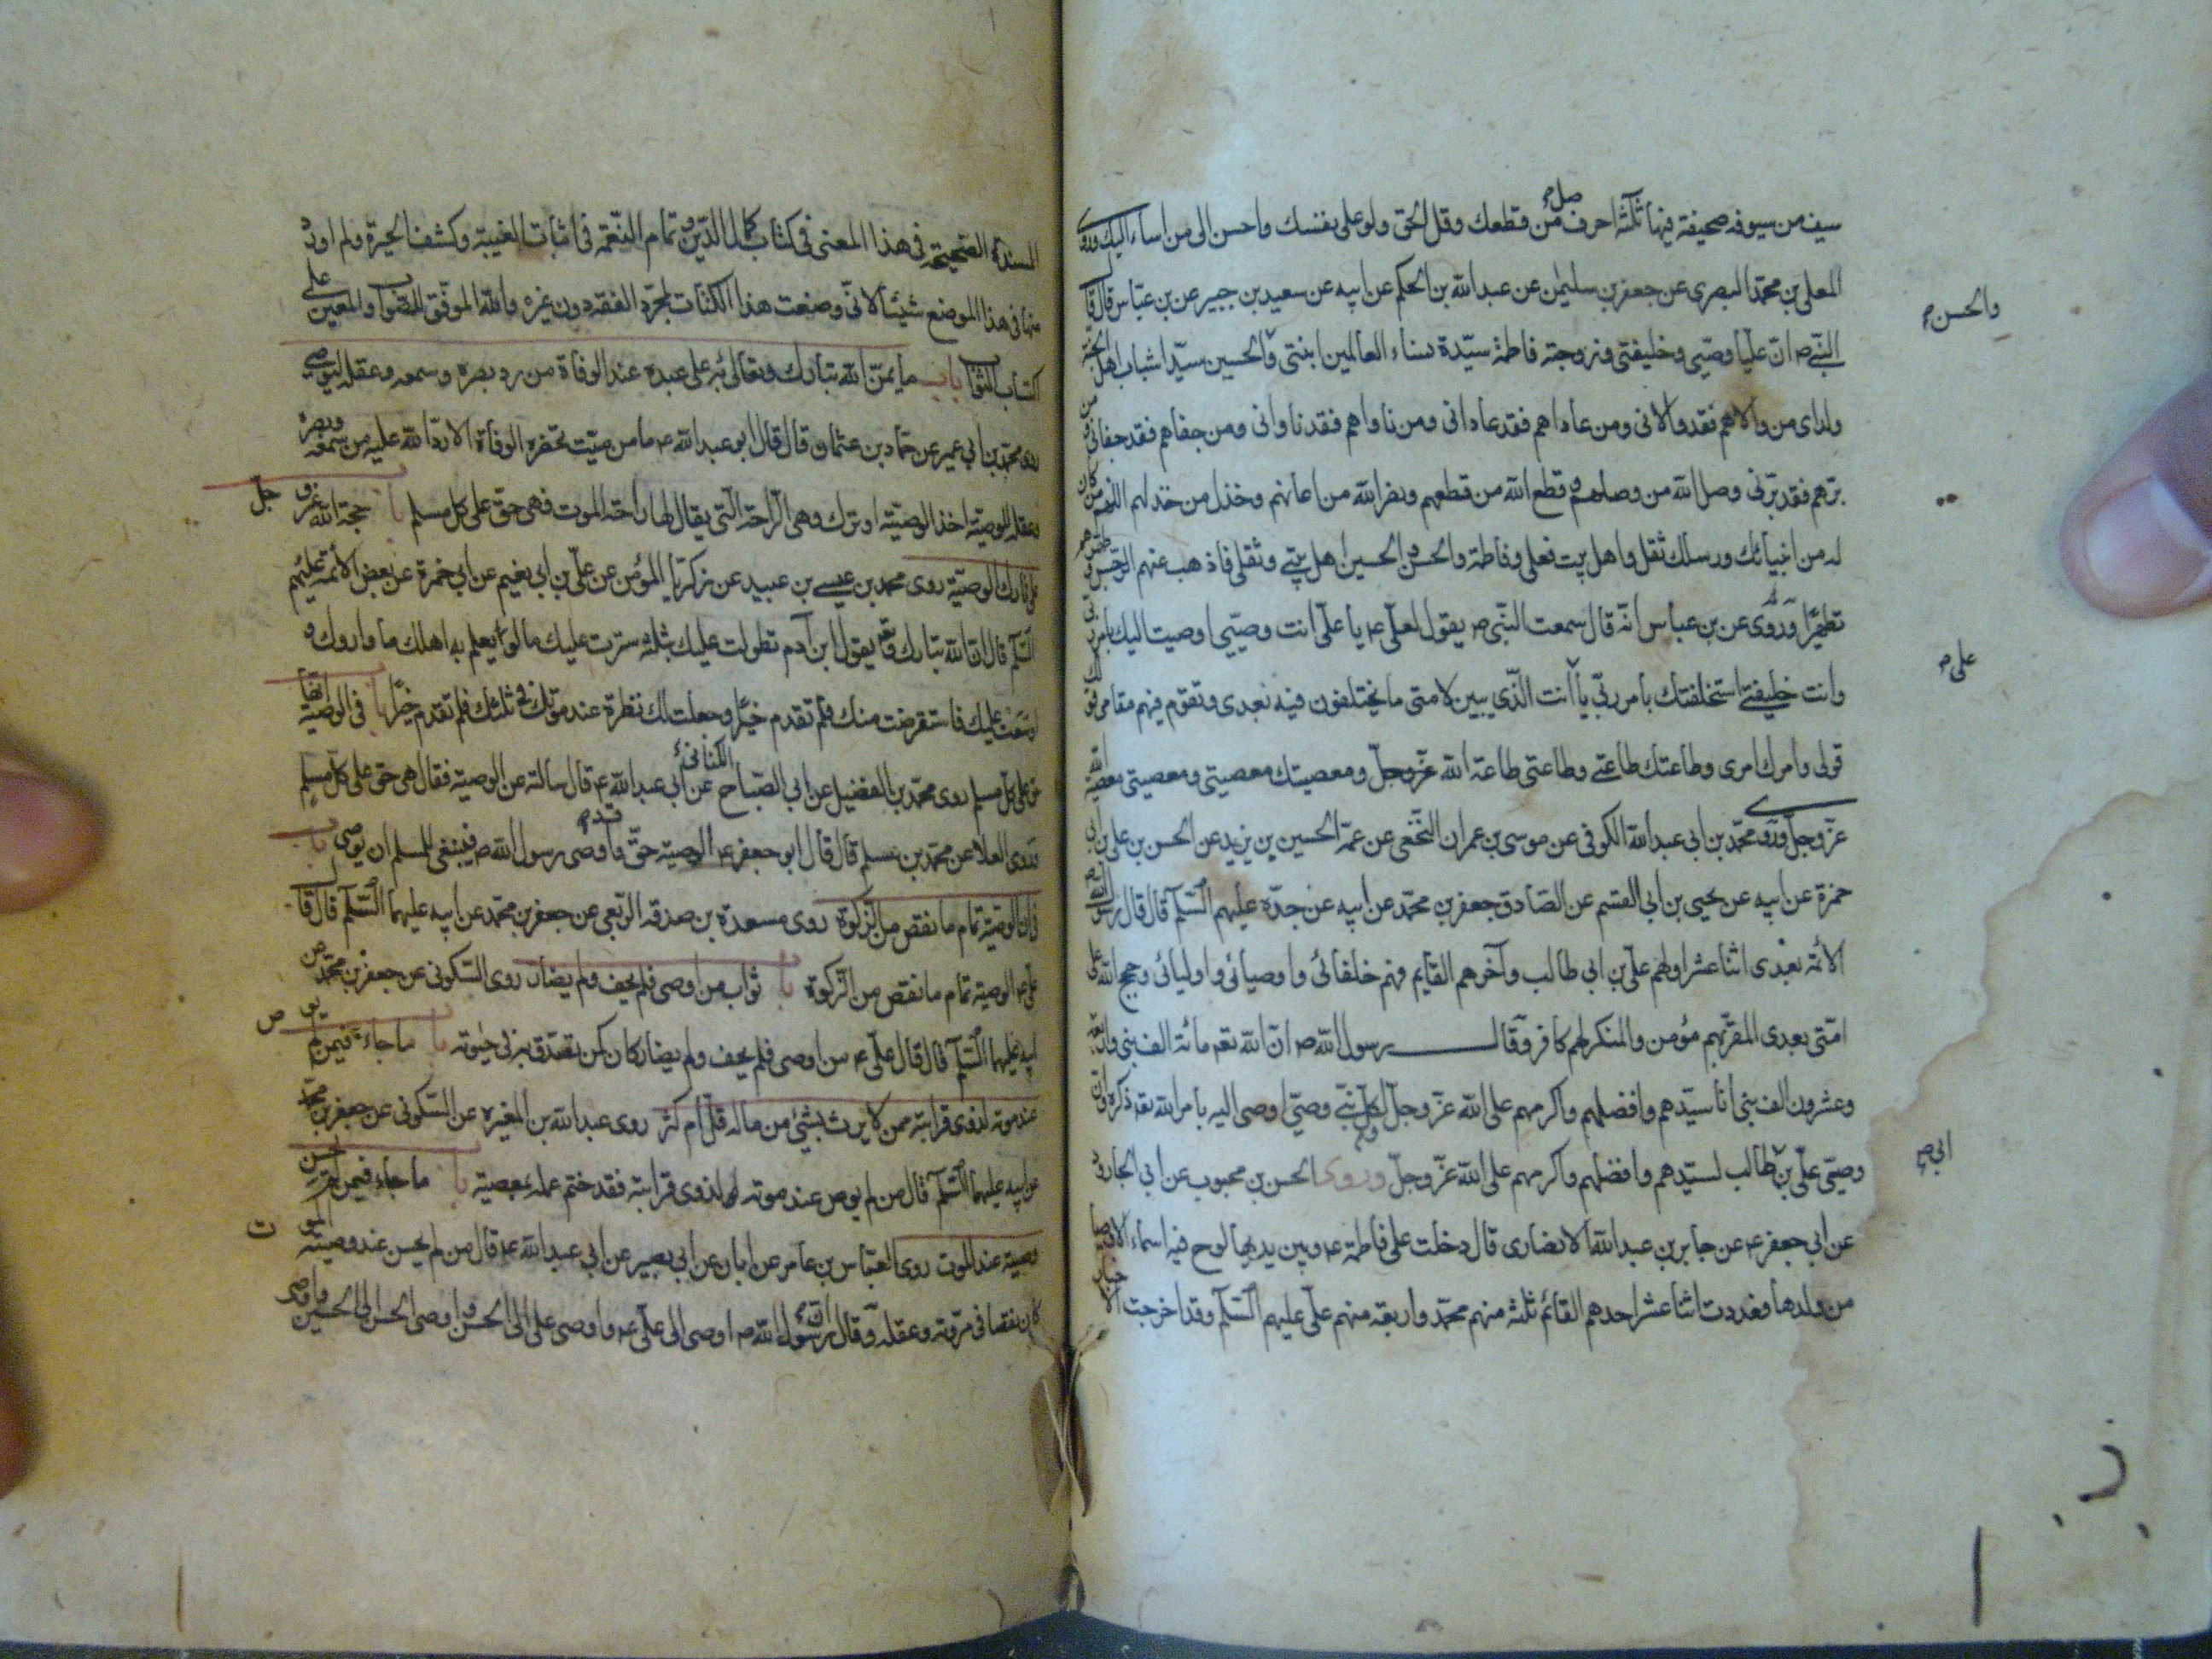 سيف من سيوفه صحيفة فيها ثلثة احرف صل من قطعك وقل الحق ولو على نفسك واحسن الى من اساء اليك وروى
المعلى بن محمد البصرى عن جعفر بن سليمن عن عبد الله بن الحكم عن ابيه عن سعيد بن جبير عن بن عباس قال قال
النبى ص ان عليا وصيى وخليفتى وزوجته فاطمة سيدة نساء العالمين ابنتى والحسن والحسين سيدا شباب اهل الجنة
ولداى من والاهم فقد والانى ومن عاداهم فقد عادانى ومن ناواهم فقد ناوانى ومن جفاهم فقد جفانى ومن
برهم فقد برنى وصل الله من وصلهم وقطع الله من قطعهم ونصر الله من اعانهم وخذل من خذلهم اللهم من كان
له من انبيائك ورسلك ثقل واهل بيت فعلى وفاطمة والحسن والحسين اهل بيتى وثقلى فاذهب عنهم الرجس وطهرهم
تطهيرا وروى عن بن عباس انه قال سمعت النبى ص يقول لعلى ع يا على انت وصيى اوصيت اليك بامر ربى
وانت خليفتى استخلفتك بامر ربى يا على انت الذى يبين لامتى ما يختلفون فيه بعدى وتقوم فيهم مقامى قولك
قولى وامرك امرى وطاعتك طاعتى وطاعتى طاعة الله عز وجل ومعصيتك معصيتى ومعصيتى معصية الله
عز وجل وروى محمد بن ابى عبد الله الكوفى عن موسى بن عمران النخعى عن عمه الحسين بن يزيد عن الحسن بن على بن ابى
حمزة عن ابيه عن يحيى بن ابى القسم عن الصادق جعفر بن محمد عن ابيه عن جده عليهم السلم قال قال رسول الله ص
الائمة بعدى اثنا عشر اولهم على بن ابى طالب وآخرهم القايم فهم خلفائى واوصيائى واوليائى وحجج الله على
امتى بعدى المقر بهم مؤمن والمنكر لهم كافر وقال رسول الله ص ان لله تعه مائة الف نبى واربعة
وعشرون الف نبى انا سيدهم وافضلهم واكرمهم على الله عز وجل ولكل نبى وصى اوصى اليه بامر الله تعه ذكره وان
وصيى على بن ابى طالب لسيدهم وافضلهم واكرمهم على الله عز وجل وروى الحسن بن محبوب عن ابى الجارود
عن ابى جعفر ع عن جابر بن عبد الله الانصارى قال دخلت على فاطمة ع وبين يديها لوح فيه اسماء الاوصيا
من ولدها فعددت اثنا عشر احدهم القائم ثلثة منهم محمد واربعة منهم على عليهم السلم وقد اخرجت الاخبار
والحسن
على
ابى
المسندة الصحيحة فى هذا المعنى فى كتاب كمال الدين وتمام النعمة فى اثبات الغيبة وكشف الحيرة ولم اورد
منها فى هذا الموضع شيئا لانى وضعت هذا الكتاب لمجرد الفقه دون غيره والله الموفق للصواب والمعين على
اكتساب الثواب باب ما يمن الله تبارك وتعالى به على عبده عند الوفاة من رد بصره وسمعه وعقله ليوصى
روى محمد بن ابى عمير عن حماد بن عثمان قال قال ابو عبد الله ع ما من ميت تحضره الوفاة الا رد الله عليه من سمعه وبصره
وعقله للوصية اخذ الوصية او ترك وهى الراحة التى يقال لها راحة الموت فهى حق على كل مسلم باب حجة الله عز وجل
على تارك الوصية روى محمد بن عيسى بن عبيد عن زكريا المؤمن عن على بن ابى نعيم عن ابى حمزة عن بعض الائمة عليهم
السلم قال ان الله تبارك وتعه يقول ابن آدم تطولت عليك بثلثة سترت عليك ما لو يعلم به اهلك ما واروك و
اوسعت عليك فاستقرضت منك فلم تقدم خيرا وجعلت لك نظرة عند موتك فى ثلثك فلم تقدم خيرا باب فى الوصية انها
حق على كل مسلم روى محمد بن الفضيل عن ابى الصباح الكنانى عن ابى عبد الله ع قال سالته عن الوصية فقال هى حق على كل مسلم
وروى العلا عن محمد بن مسلم قال قال ابو جعفر ع الوصية حق وقد اوصى رسول الله ص فينبغى للمسلم ان يوصى باب
فى ان الوصية تمام ما نقص من الزكوة روى مسعدة بن صدقة الربعى عن جعفر بن محمد عن ابيه عليهما السلم قال قال
على ع الوصية تمام ما نقص من الزكوة باب ثواب من اوصى فلم يحف ولم يضار روى السكونى عن جعفر بن محمد عن
ابيه عليهما السلم قال قال على ع من اوصى فلم يحف ولم يضار كان كمن تصدق به فى حيوته باب ما جاء فيمن لم يوص
عند موته لذوى قرابته ممن لا يرث بشئ من ماله قل ام كثر روى عبد الله بن المغيرة عن السكونى عن جعفر بن محمد
عن ابيه عليهما السلم قال من لم يوص عند موته لذوى قرابته فقد ختم عمله بمعصية باب ما جاء فيمن لم يحسن
وصيته عند الموت روى العباس بن عامر عن ابان عن ابى بصير عن ابى عبد الله ع قال من لم يحسن عند وصيته الموت
كان نقصا فى مروته وعقله وقال ان رسول الله ص اوصى الى على ع واوصى على الى الحسن واوصى الحسن الى الحسين واوصى